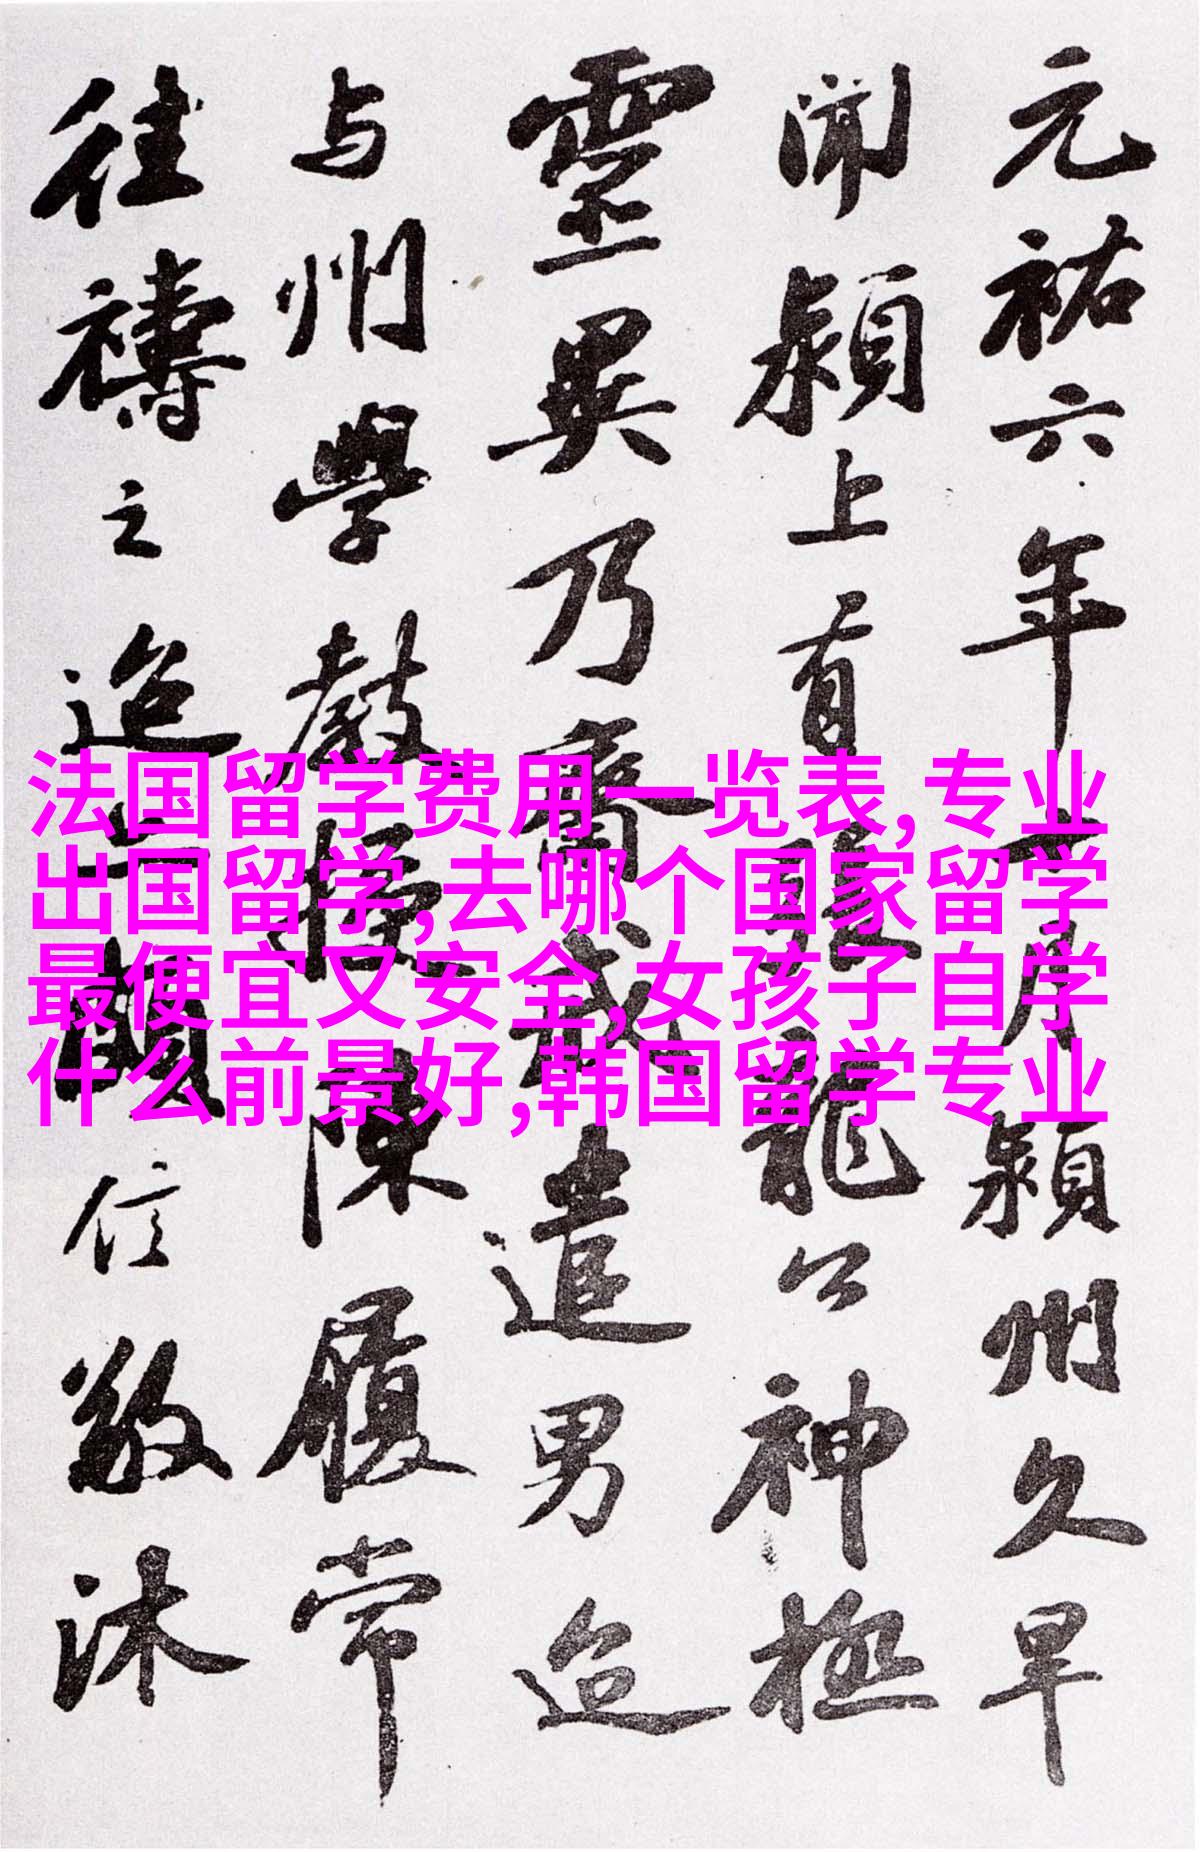 元祐六年十月潁州久旱
聞潁上有張龍公神極
靈異乃齋戒遣男迨
与州學教授陳履常
往禱之迨亦頗信敬沐
法国留学费用一览表,专业
出国留学,去哪个国家留学
最便宜又安全,女孩子自学
什么前景好,韩国留学专业